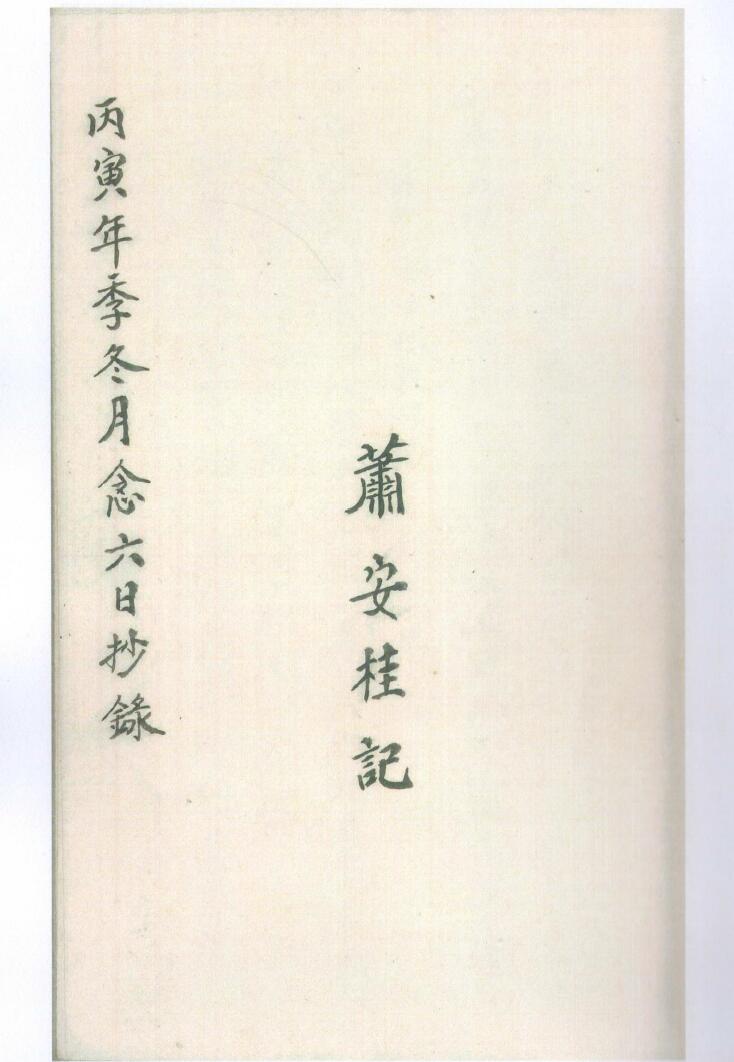 蕭安桂記
丙寅年季冬月念六日抄錄